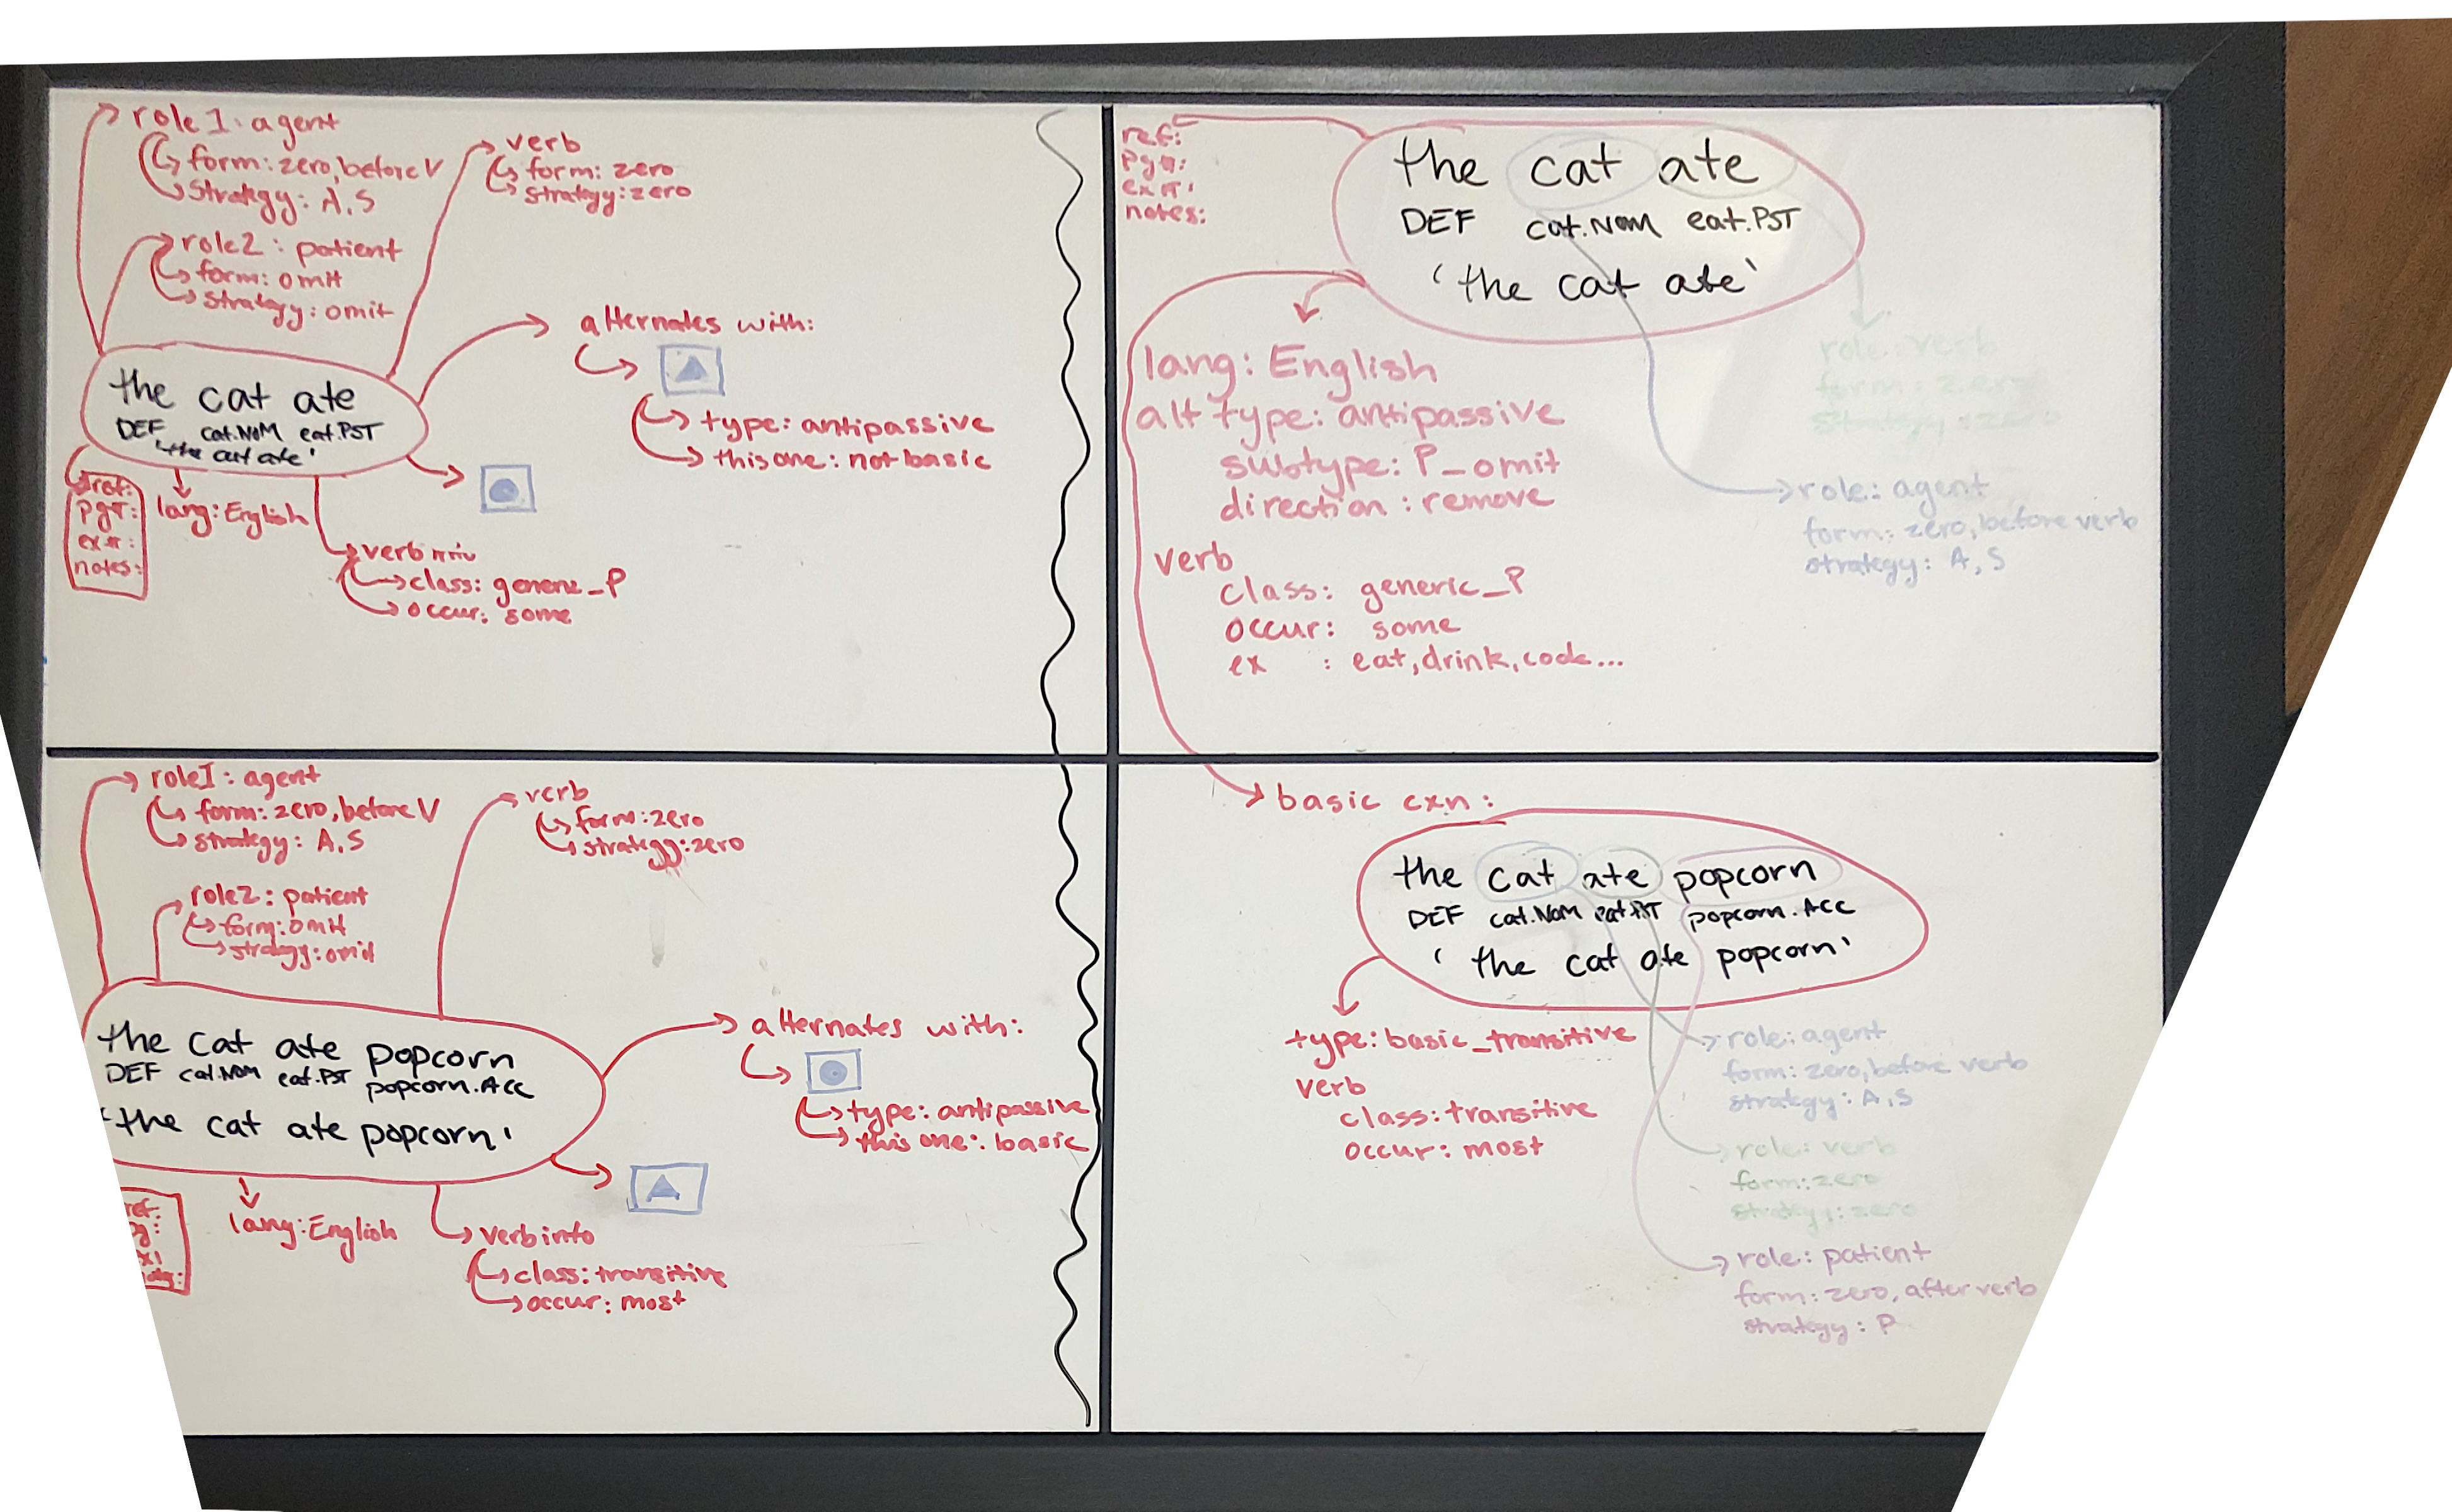 role 1: agent
form: zero, before V
strategy: A, S
role2: patient
form: omit
strategy: omit
verb
form: zero
strategy: zero
alternates with:
type: antipassive
this one: not basic
the cat ate
DEF cat.NOM eat.PST
'the cat ate'
ref:
pg#:
ex#:
notes:
lang: English
verb
class: generic_P
occur: some
ref:
pg#:
ex#:
notes:
the cat ate
DEF cat.NOM eat.PST
'the cat ate'
lang: English
alt type: antipassive
subtype: P_omit
direction: remove
verb
class: generic_P
occur: some
ex : eat, drink, cook...
role: verb
form: zero
strategy: zero
role: agent
form: zero, before verb
strategy: A, S
role1: agent
form: zero, before V
strategy: A, S
role2: patient
form: omit
strategy: omit
verb
form: zero
strategy: zero
alternates with:
type: antipassive
this one: basic
the cat ate popcorn
DEF cat.NOM eat.PST popcorn.ACC
'the cat ate popcorn'
ref:
lang: English
verb info
class: transitive
occur: most
basic cxn:
the cat ate popcorn
DEF cat.NOM eat.PST popcorn.ACC
'the cat ate popcorn'
type: basic_transitive
verb
class: transitive
occur: most
role: agent
form: zero, before verb
strategy: A, S
role: verb
form: zero
strategy: zero
role: patient
form: zero, after verb
strategy: P